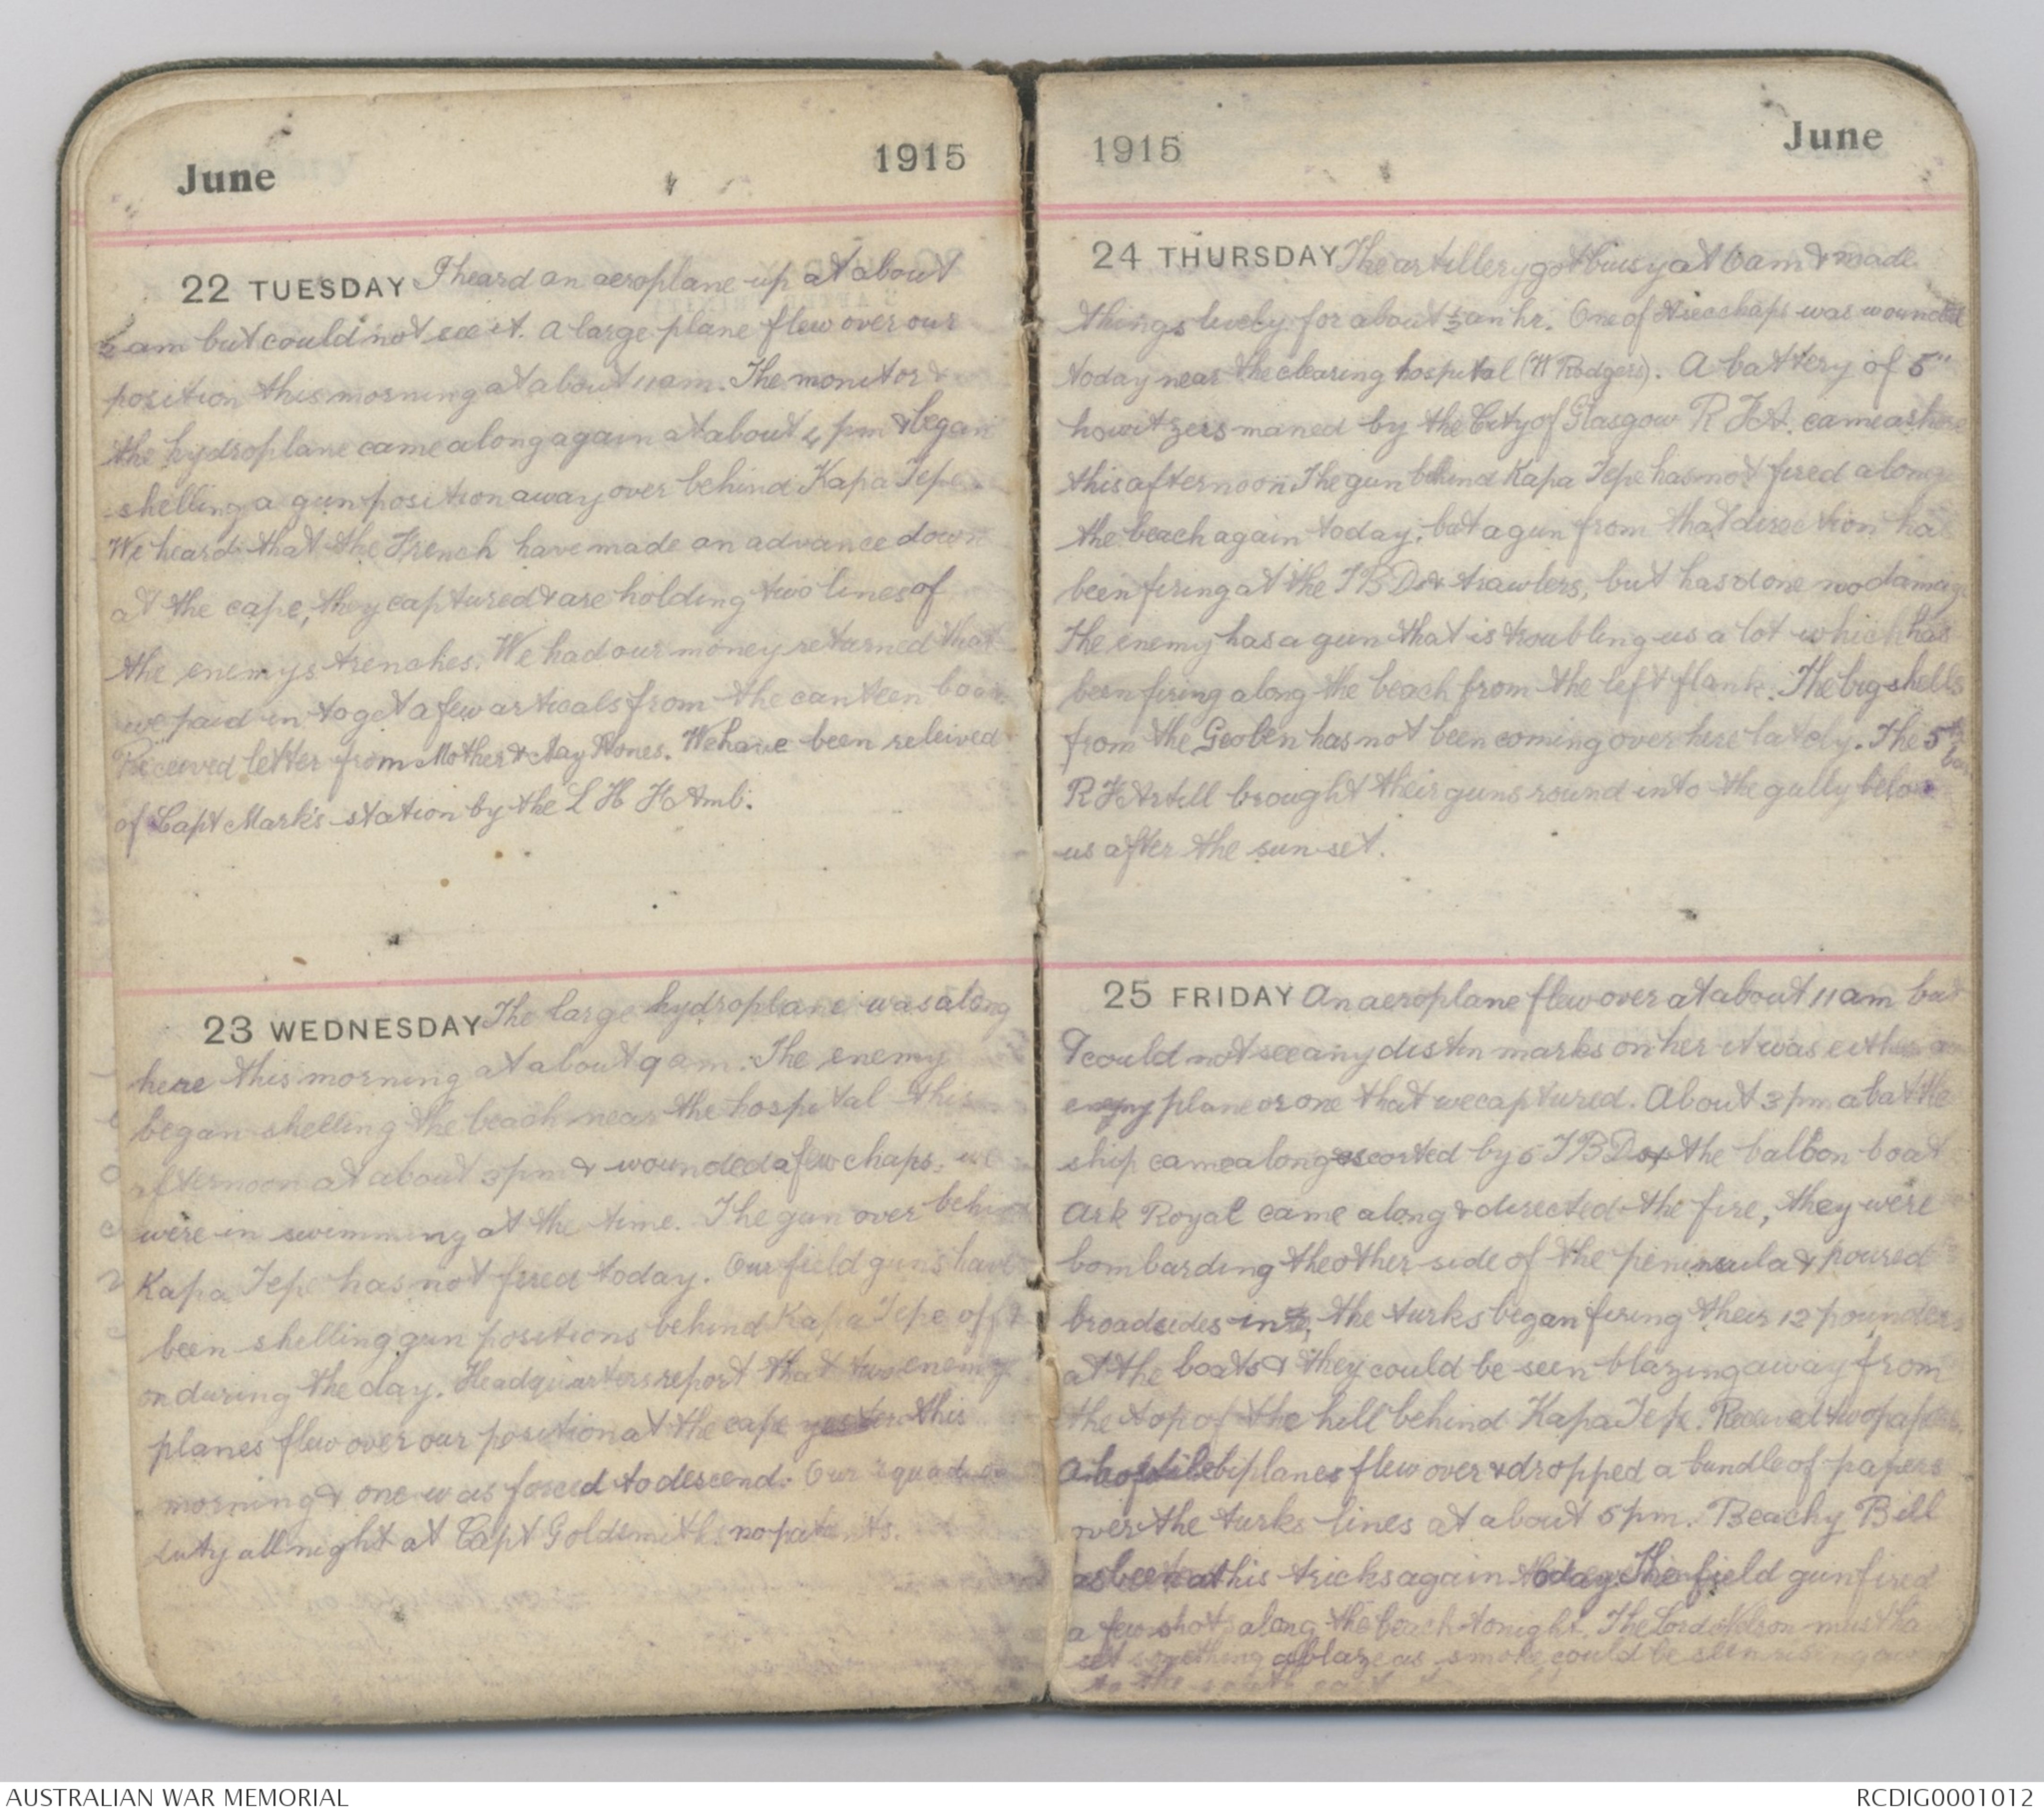 June 1915
22 TUESDAY I heard an aeroplane up at about
am but could not see it. A large plane flew over our
position this morning at about 11 am. The monitor &
the hydroplane came along again at about 4 pm & began
shelling a gun position away over behind Kapa Tepe.
We heard that the French have made an advance down
at the cape, they captured & are holding two lines of
the enemys trenches. We had our money returned that
we paid in to get a few articals from the canteen boat.
Received letter from Mother & May Jones. We have been releived
of Capt Marks station by the L H F Amb.
23 WEDNESDAY The large hydroplane was along
here this morning at about 9 am. The enemy
began shelling the beach near the hospital this
afternoon at about 3 pm & wounded a few chaps. we
were in swimming at the time. The gun over behind
Kapa Tepe has not fired today. Our field guns have
been shelling gun positions behind Kapa Tepe off &
on during the day. Headquarters report that two enemy
planes flew over our position at the cape this
morning & one was forced to descend. Our squad on
duty all night at Capt Goldsmiths no patients.
1915 June
24 THURSDAY The artillery got busy at 6 am & made
things lively for about ½ an hr. One of chaps was wounded
today near the clearing hospital (W Rodgers). A battery of 5"
howitzers maned by the City of Glasgow R F A. came ashore
this afternoon. The gun behind Kapa Tepe has not fired along
the beach again today, but a gun from that direction has
been firing at the T B Ds & trawlers, but has done no damage
The enemy has a gun that is troubling us a lot which has
been firing along the beach from the left flank. The big shells
from the Geoben has not been coming over here lately. The 5th
bat
R F Artill brought their guns round into the gully below
us after the sun set.
25 FRIDAY An aeroplane flew over at about 11 am but
I could not see any distin marks on her it was either an
enemy plane or one that we captured. About 3 pm a battle
ship came along escorted by 5 T B Ds & the balloon boat
Ark Royal came along & directed the fire, they were
bombarding the other side of the peninsula & poured
broadsides in, the turks began firing their 12 pounders
at the boats & they could be seen blazing away from
the top of the hill behind Kapa Tepe. Received two papers.
A hostile biplane flew over & dropped a bundle of papers
over the turks lines at about 5 pm. Beachy Bill
as been at his tricks again today. The field gun fired
a few shots along the beach tonight. The Lord Nelson must ha
set something ablaze as smoke could be seen rising away
to the south east
AUSTRALIAN WAR MEMORIAL
RCDIG0001012